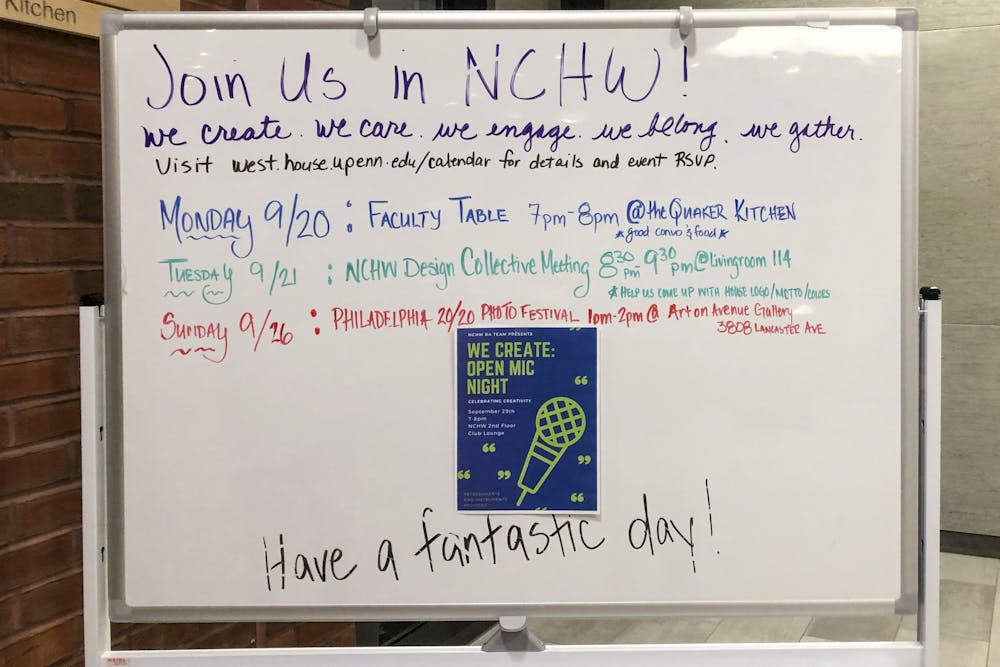 Kitchen
Join Us in NCHW!
we create. we care. we engage. we belong. we gather.
Visit west.house.upenn.edu/calendar for details and event RSVP.
MONDAY 9/20 : FACULTY TABLE 7pm-8pm @theQUAKER KITCHEN
*good convo & food*
TUESDAY 9/21 : NCHW Design Collective Meeting 8:30pm-9:30pm@Livingroom 114
*HELP US COME UP WITH HOUSE LOGO/MOTTO/COLORS
SUNDAY 9/26 : PHILADELPHIA 20/20 PHOTO FESTIVAL 1pm-2pm@ Art on Avenue Gallery
3808 LANCASTER AVE
NCHW RA TEAM PRESENTS
WE CREATE:
OPEN MIC
NIGHT
CELEBRATING CREATIVITY
September 29th
7-8pm
NCHW 2nd Floor
Club Lounge
REFRESHMENTS
AND INSTRUMENTS
PROVIDED
Have a fantastic day!